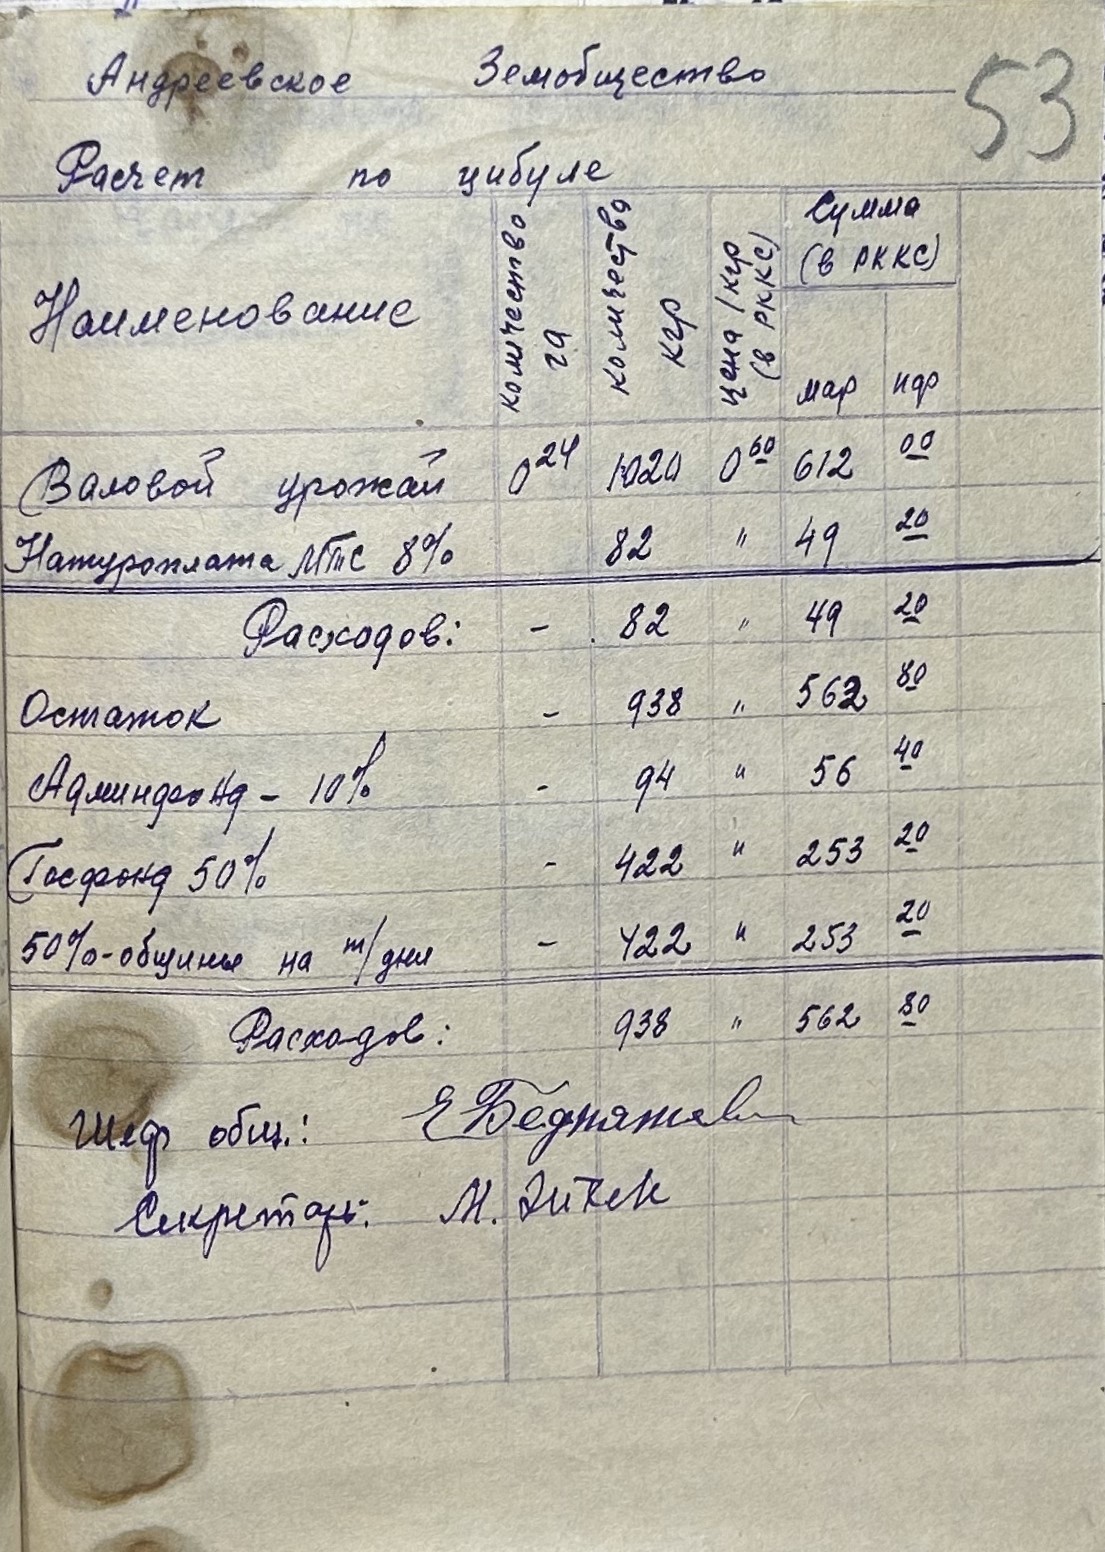 53
Андреевское Земобщество
Расчет по цибуле
Наименование количество га количество кгр цена 1 кгр (в РККС) Сумма (в РККС)
мар пф
Валовой урожай 0 24 1020 0 60 612 00
Натуроплата МТС 8% 82 " 49 20
Расходов: - 82 " 49 20
Остаток - 938 " 562 80
Админфонд - 10% - 94 " 56 40
Госфонд 50% - 422 " 253 20
50% - общине на т/дни - 422 " 253 20
Расходов: 938 " 562 80
Шеф общ.:
Секретарь: М.